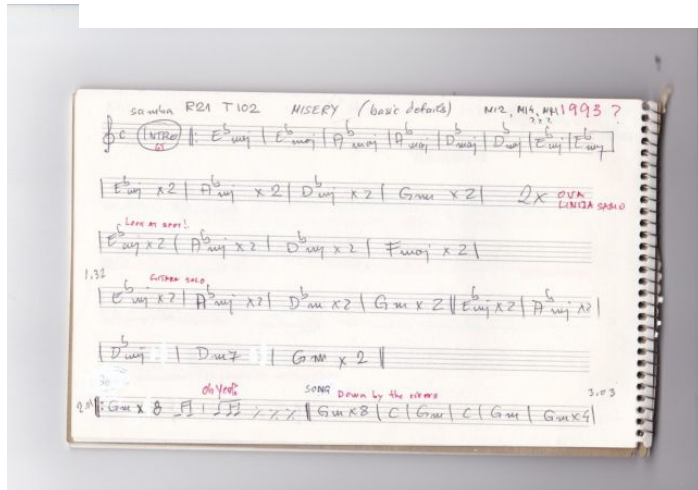 samba R21 T102 MISERY (basic defaits) M12, M14, MM1 1993 ?
C INTRO |: Eb maj | Eb maj | Ab maj | Ab maj | Db maj | Db maj | Eb maj | Eb maj |
| Eb mj x 2 | Ab mj x 2 | Db mj x 2 | Gm x 2 | 2x OVA LINIJA SAMO
Look at
| Eb mj x 2 | Ab mj x 2 | Db mj x 2 | F maj x 2 |
1.32 GITARA SOLO
Eb mj x 2 | Ab mj x 2 | Db m x 2 | Gm x 2 || Eb mj x 2 | Ab mj x 2 |
| Db mj | Dm7 | Gm x 2 ||
oh Yeah SONG Down by the rivers 3.03
|: Gm x 8 ٪ ٪ ٪ || Gm x 8 | C | Gm | C | Gm | Gm x 4 |